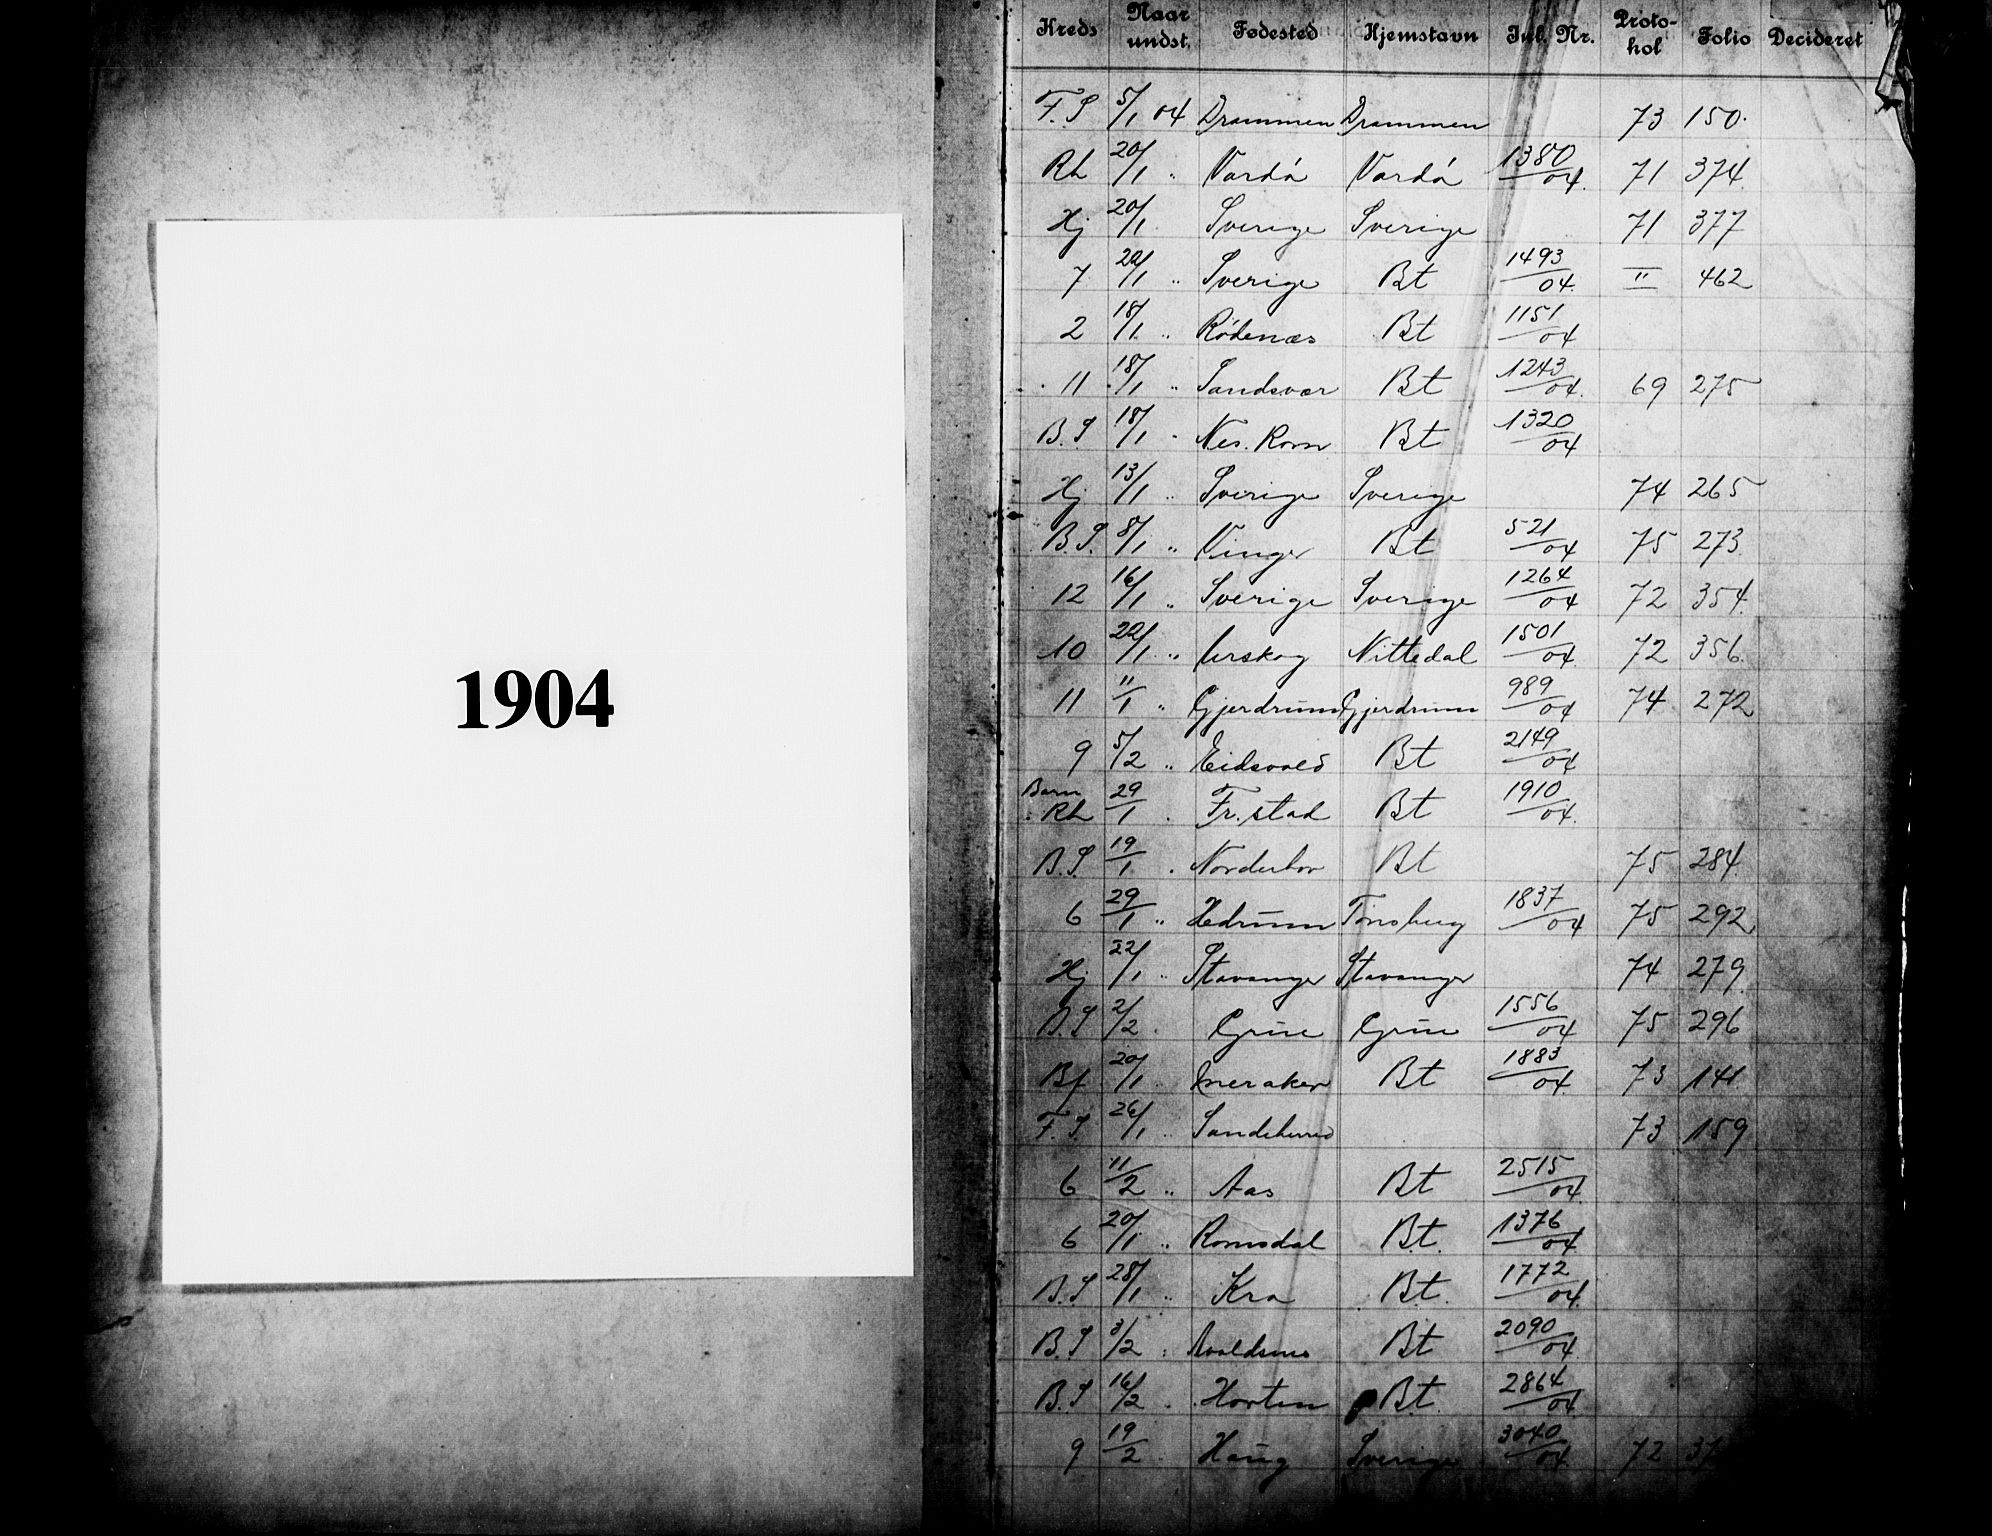 1904
Kreds Naar undst. Fødested Hjemstavn Jul. Nr. Proto-kol Folio Decideret
F. S 5/1 04 Drammen Drammen 73 150.
Rh 20/1 " Vardø Vardø 1380/04. 71 374.
Hj 20/1 Sverige Sverige 71 377
7 22/1 " Sverige Bt 1493/04. II 462
2 18/1 " Rødenæs Bt 1151/04
11 18/1 " Sandsvær Bt 1243/04. 69 275
B. S 18/1 " Nes. Rom Bt 1320/04
Hj 13/1 " Sverige Sverige 74 265
B. S. 8/1 " Vinger Bt 521/04 75 273.
12 16/1 " Sverige Sverige 1264/04 72 354.
10 22/1 " Urskog Nittedal 1501/04. 72 356.
11 11/1 " Gjerdrum Gjerdrum 989/04 74 272
9 5/2 " Eidsvold Bt 2149/04
Barn Rh 29/1 . Fr. stad Bt 1910/04.
B. S. 19/1 . Norderhov Bt 75 284.
6 29/1 " Hedrum Tønsberg 1837/04 75 292
Hj 22/1 " Stavanger Stavanger 74 279.
B. S 2/2 . Grue Grue 1556/04 75 296
Bf 20/1 . Bt 1883/04. 73 141.
F. S. 26/1 " Sandeherred 73 159
6 11/2 " Aas Bt 2515/04
6 20/1 " Romsdal Bt. 1376/04
B. S 28/1 " Kra Bt. 1772/04.
B. S 3/2 : Bt 2090/04.
B. S 16/2 . Horten Bt. 2864/04.
9 19/2 Haug Sverige 3040/04. 72